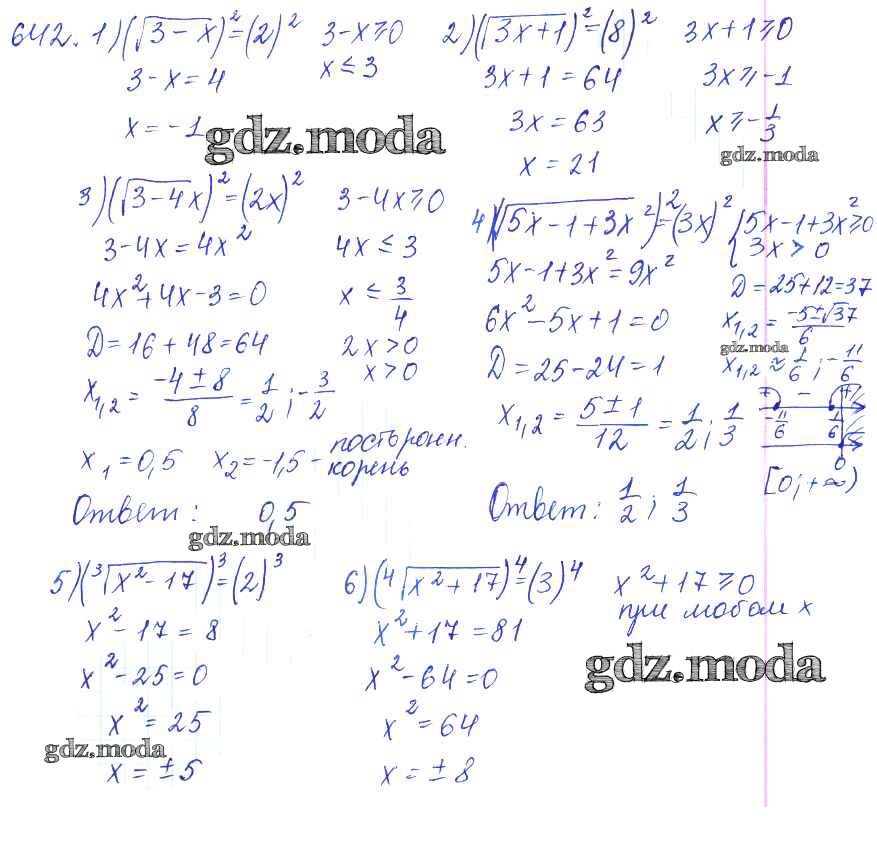 642. 1) (√3-x)² = (2)²   3-x≥0
3-x=4   x≤3
x=-1
2) (√3x+1)² = (8)²   3x+1≥0
3x+1=64   3x≥-1
3x=63   x≥-1/3
x=21
gdz.moda
gdz.moda
3) (√3-4x)² = (2x)²   3-4x≥0
3-4x=4x²   4x≤3
4x²+4x-3=0   x≤3/4
D=16+48=64   2x>0
x₁,₂ = (-4±8)/8 = 1/2; -3/2   x>0
x₁=0,5   x₂=-1,5 - посторонн. корень
Ответ: 0,5
gdz.moda
4) (√5x-1+3x²)² = (3x)²   { 5x-1+3x²≥0
3x>0
5x-1+3x²=9x²   D=25+12=37
6x²-5x+1=0   x₁,₂ = (-5±√37)/6
gdz.moda
D=25-24=1   x₁,₂ ≈ 1/6; -11/6
x₁,₂ = (5±1)/12 = 1/2; 1/3
+ - +
-11/6   1/6
0
[0;+∞)
Ответ: 1/2; 1/3
5) (³√x²-17)³ = (2)³
x²-17=8
x²-25=0
x²=25
gdz.moda
x=±5
6) (⁴√x²+17)⁴ = (3)⁴   x²+17≥0
при любом x
x²+17=81
x²-64=0
gdz.moda
x²=64
x=±8